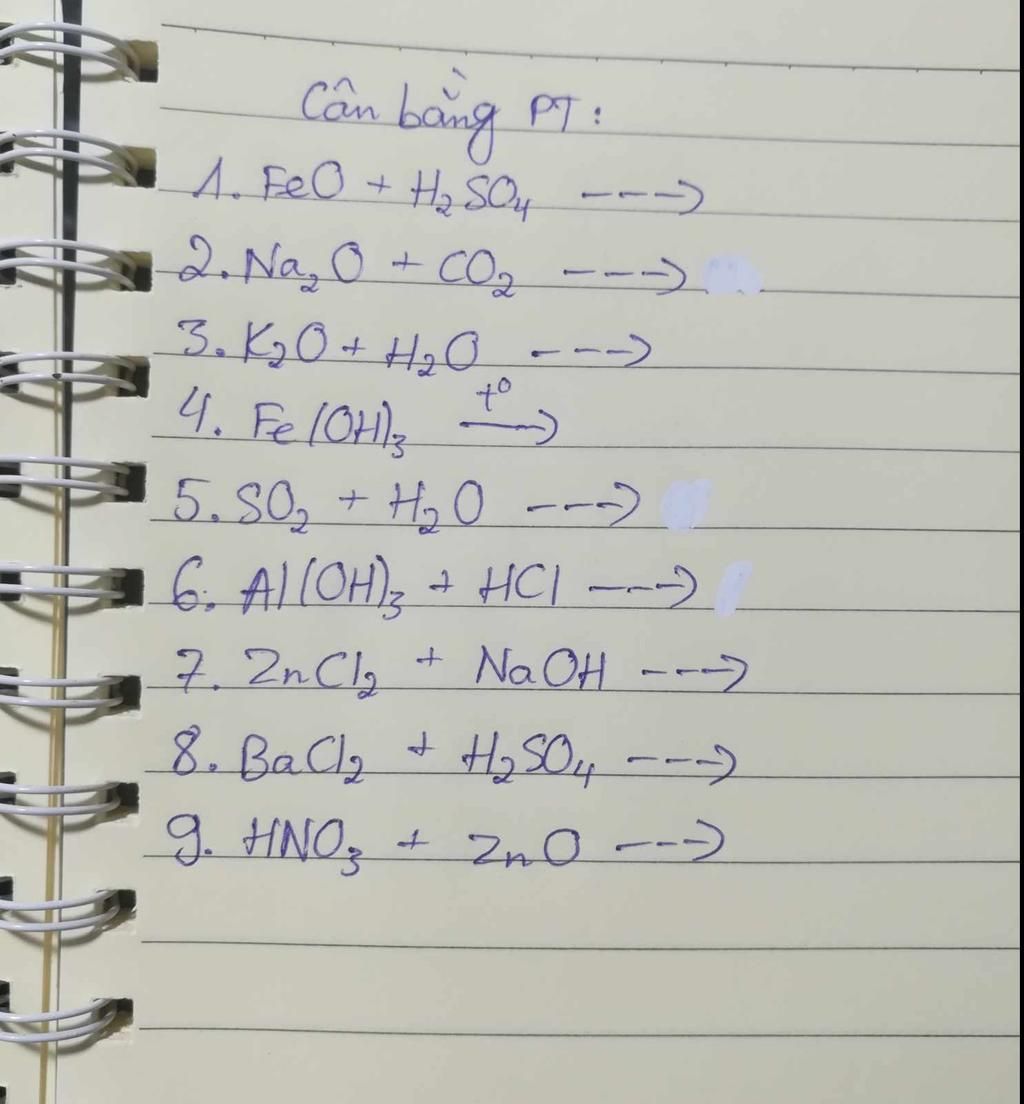 Cân bằng PT:
1. FeO + H₂SO₄ --->
2. Na₂O + CO₂ --->
3. K₂O + H₂O --->
4. Fe(OH)₃ t⁰→
5. SO₂ + H₂O --->
6. Al(OH)₃ + HCl --->
7. ZnCl₂ + NaOH --->
8. BaCl₂ + H₂SO₄ --->
9. HNO₃ + ZnO --->